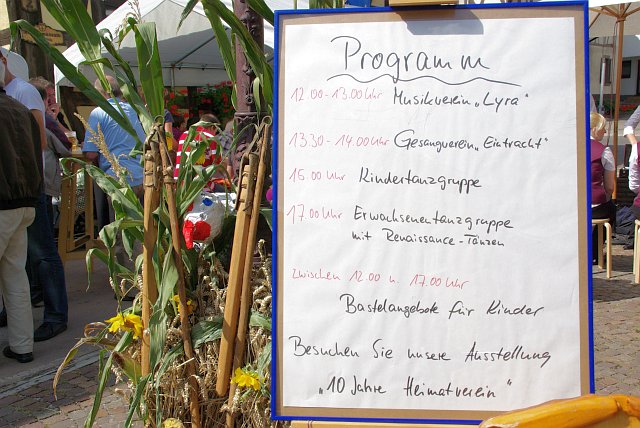 Programm
12.00-13.00 Uhr Musikverein „Lyra"
13.30-14.00 Uhr Gesangverein „Eintracht"
15.00 Uhr Kindertanzgruppe
17.00 Uhr Erwachsenentanzgruppe
mit Renaissance-Tänzen
Zwischen 12.00 u. 17.00 Uhr
Bastelangebote für Kinder
Besuchen Sie unsere Ausstellung
„10 Jahre Heimatverein"